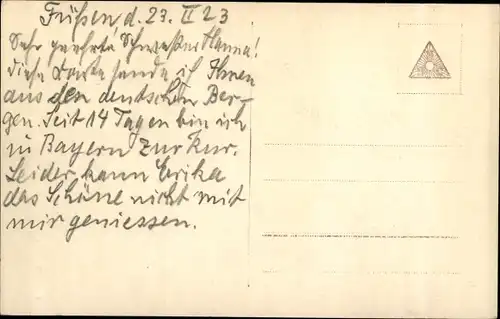 Füßen d. 23. II 23
Sehr geehrte Schwester Hanna!
Diese Karte sende ich Ihnen
aus den deutschen Ber-
gen. Seit 14 Tagen bin ich
in Bayern zur Kur.
Leider kann Erika
das Schöne nicht mit
mir geniessen.